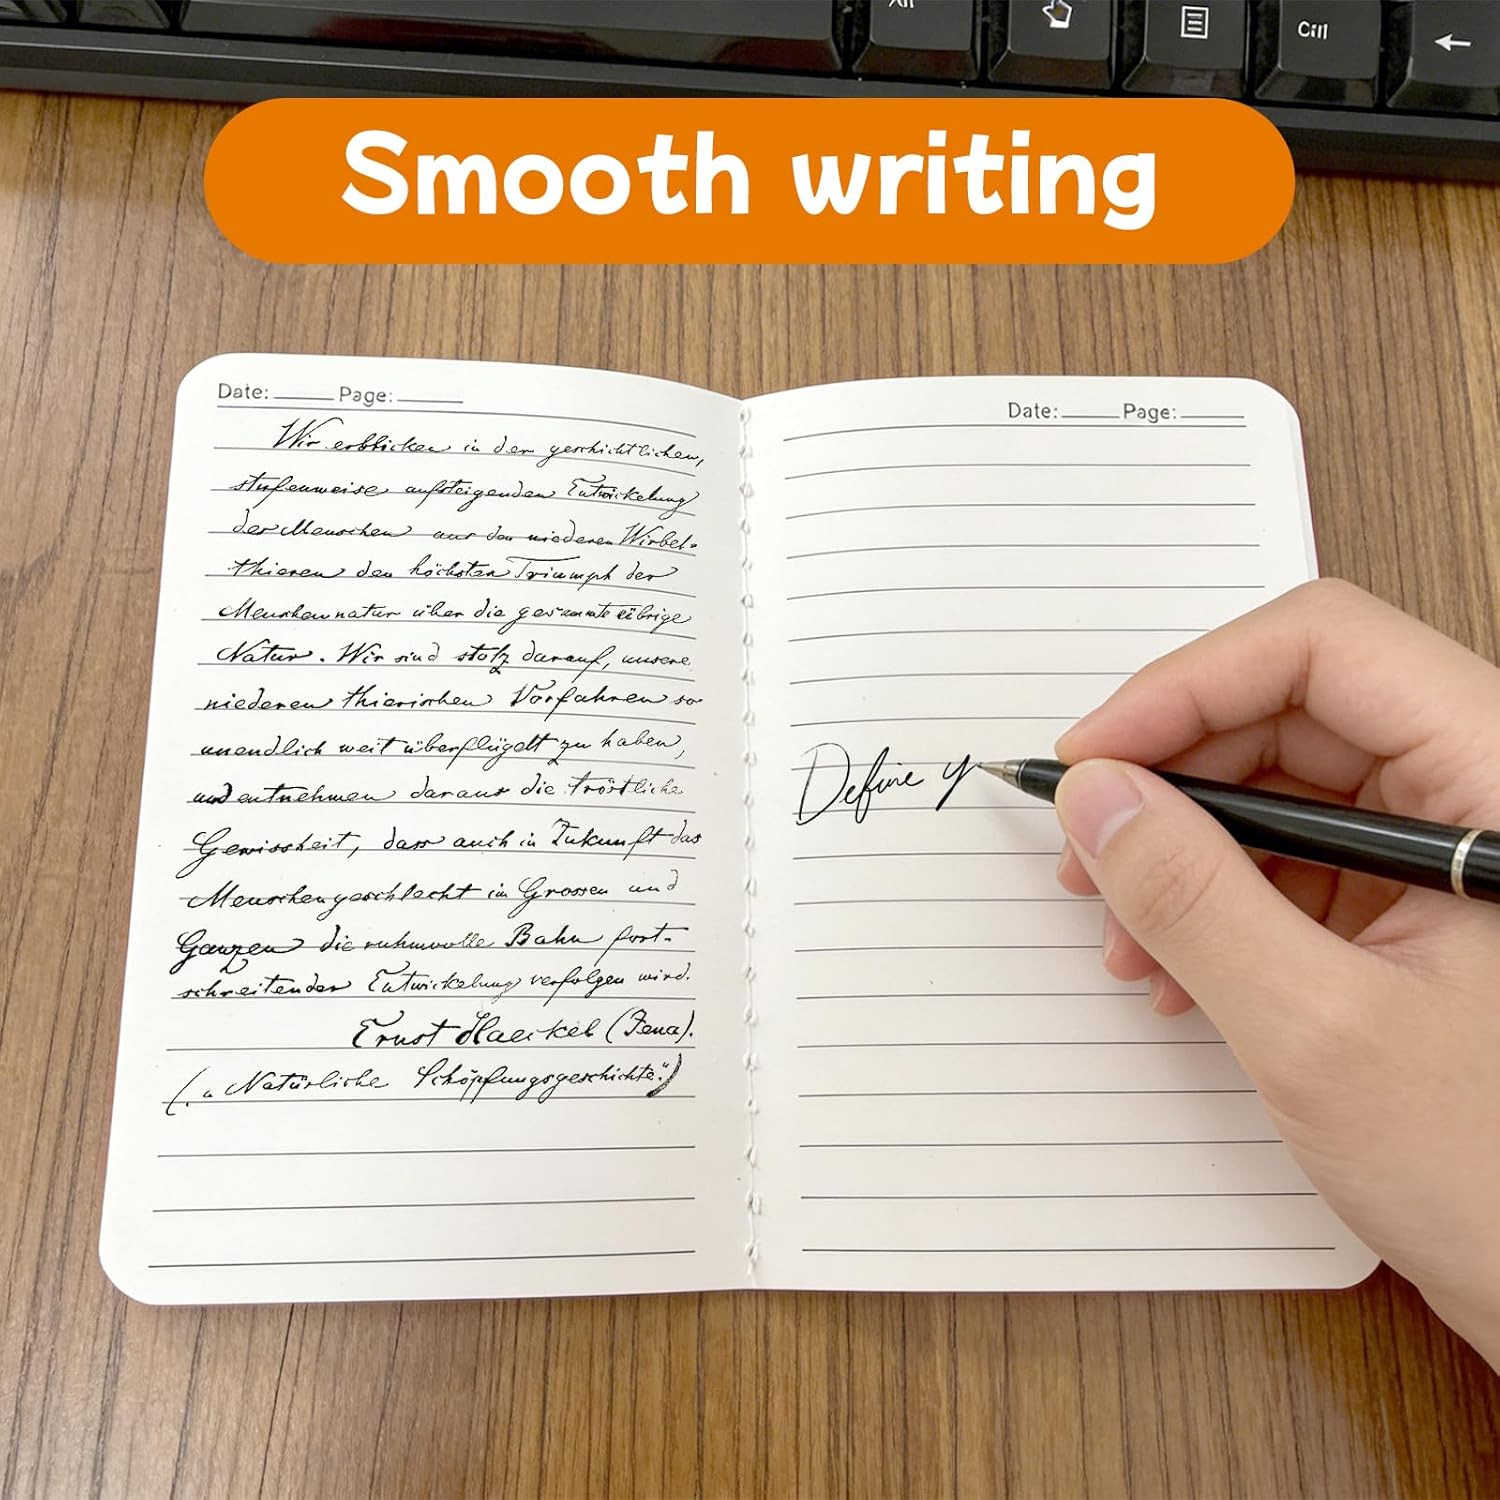 Alt
Ctrl
Smooth writing
Date: Page:
Wir erblicken in der geschichtlichen,
stufenweise aufsteigenden Entwickelung
des Menschen aus den niederen Wirbel-
thieren den höchsten Triumph der
Menschennatur über die gesammte übrige
Natur. Wir sind stolz darauf, unsere
niederen thierischen Vorfahren so
unendlich weit überflügelt zu haben,
und entnehmen daraus die tröstliche
Gewissheit, dass auch in Zukunft das
Menschengeschlecht im Grossen und
Ganzen die ruhmvolle Bahn fort-
schreitender Entwickelung verfolgen wird.
Ernst Haeckel (Jena).
(„Natürliche Schöpfungsgeschichte.")
Date: Page:
Define y